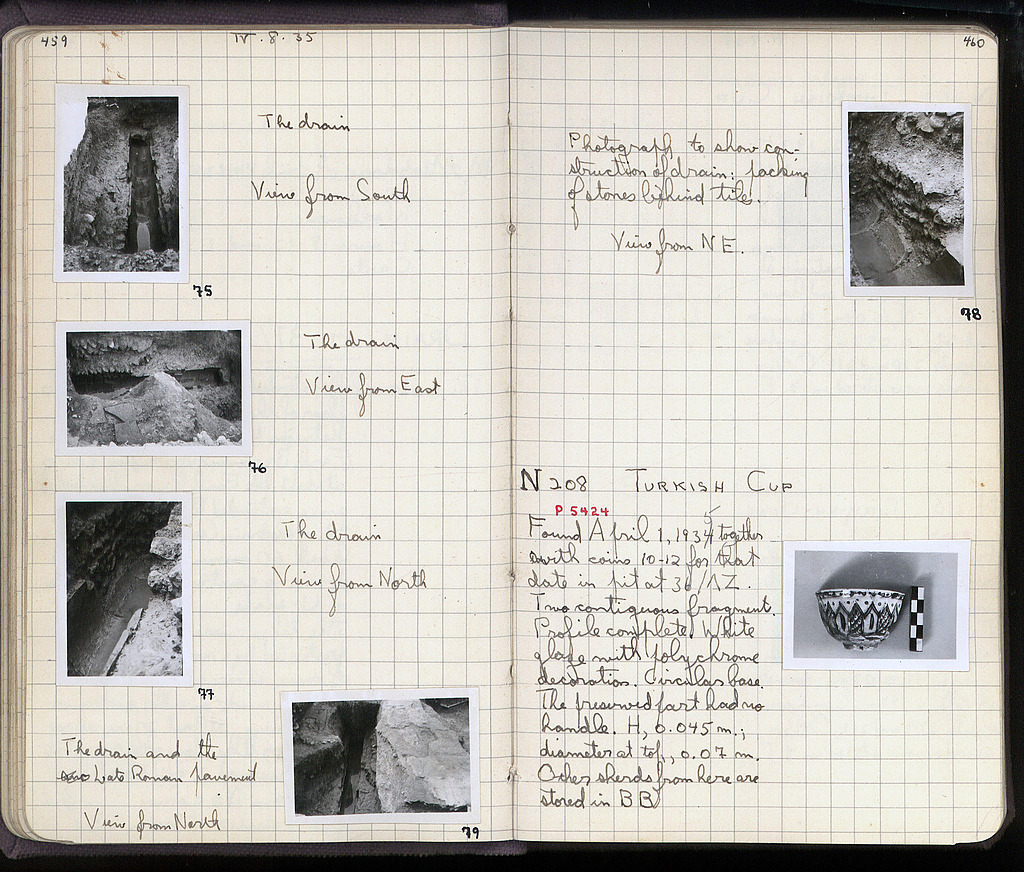 459
IV. 8. 35
The drain
View from South
75
The drain
View from East
76
The drain
View from North
77
The drain and the
Late Roman pavement
View from North
79
460
Photograph to show con-
struction of drain: packing
of stones behind tile.
View from NE.
78
N 208 TURKISH CUP
P 5424
Found April 1, 1935 together
with coins 10-12 for that
date in pit at 36/ΛZ.
Two contiguous fragment.
Profile complete. White
glaze with polychrome
decoration. Circular base.
The preserved part had no
handle. H, 0.045 m.;
diameter at top, 0.07 m.
Other sherds from here are
stored in BB